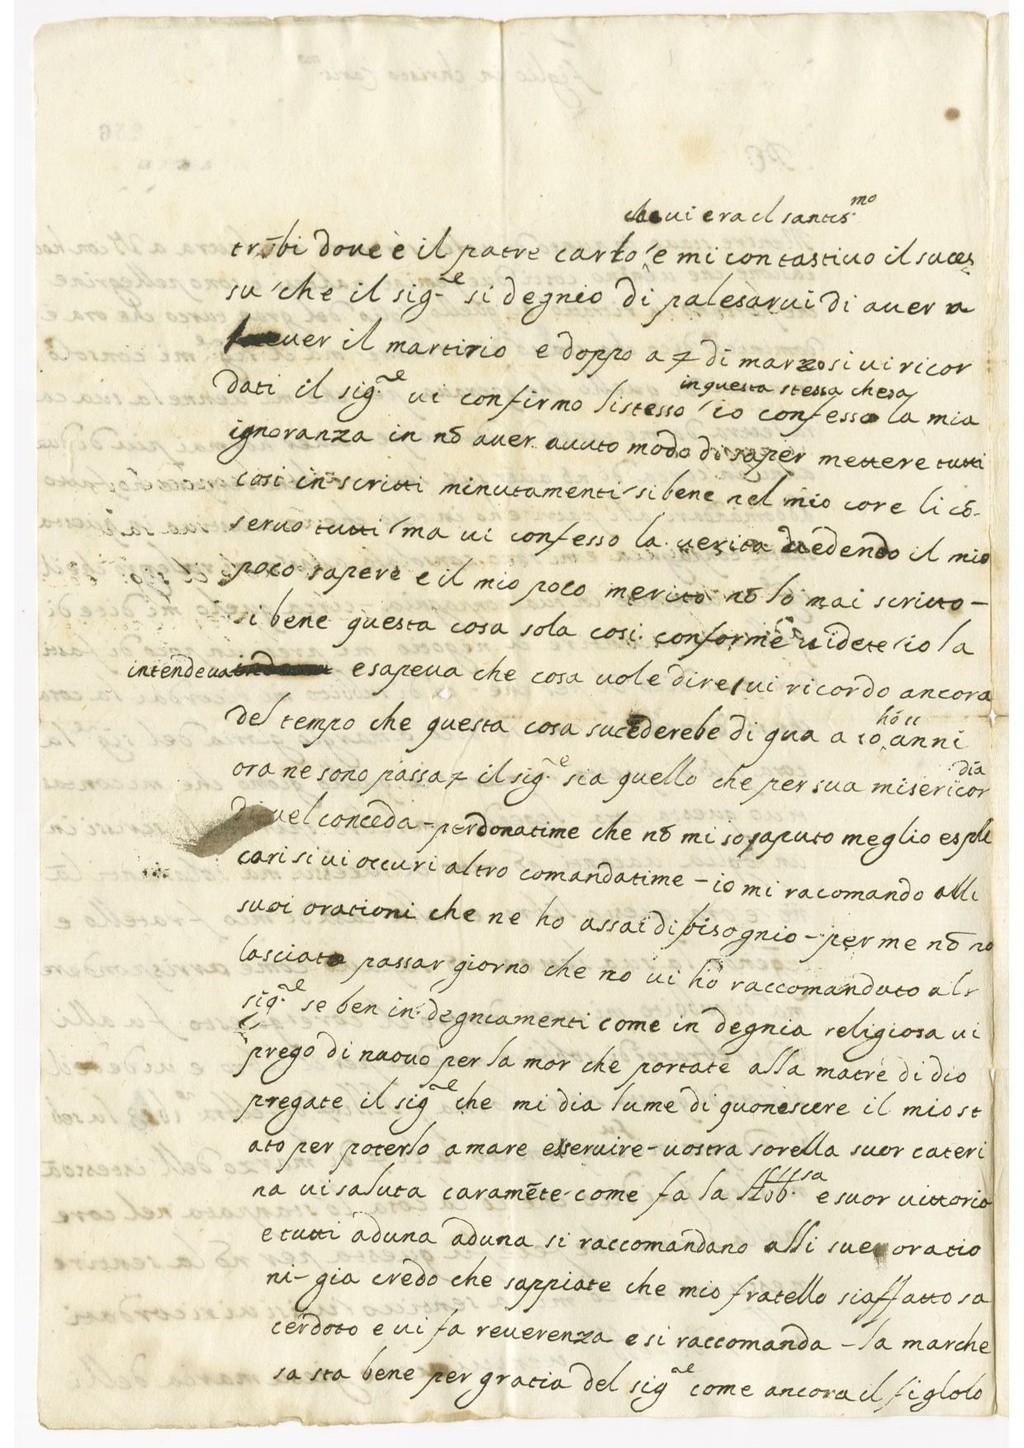 che vi era il santis.mo
trobi dove è il patre carlo e mi contastivo il suces
su che il sig.e si degnio di palesarvi di aver a
aver il martirio e doppo a 7 di marzo si vi ricor
dati il sig.e vi confirmo listesso in questa stessa chesa io confesso la mia
ignoranza in nō aver avuto modo di saper mettere tutti
cosi in scritti minutamenti si bene nel mio core li cō-
servo tutti ma vi confesso la verita vedendo il mio
poco sapere e il mio poco merito nō lo mai scritto-
si bene questa cosa sola cosi conforme videte io la
intendeva e sapeva che cosa vole dire vi ricordo ancora
del tempo che questa cosa sucederebe di qua a 10 anni
ora ne sono passa 7 il sig.e sia quello che per sua misericor
dia vel conceda - perdonatime che nō mi so saputo meglio espli
cari si vi occuri altro comandatime - io mi racomando alli
suoi orationi che ne ho assai di bisognio - per me nō no
lasciato passar giorno che no vi ho raccomandato alr
sig.e se ben in degniamenti come in degnia religiosa vi
prego di nuovo per la mor che portate alla matre di dio
pregate il sig.e che mi dia lume di quonescere il mio st
ato per poterlo amare e servire - vostra sorella suor cateri
na vi saluta caramēte come fa la Abb.sa e suor vittoria
e tutti aduna aduna si raccomandano alli sue oratio
ni - gia credo che sappiate che mio fratello siaffatto sa
cerdoto e vi fa reverenza e si raccomanda - la marche
sa sta bene per gratia del sig.e come ancora il figlolo